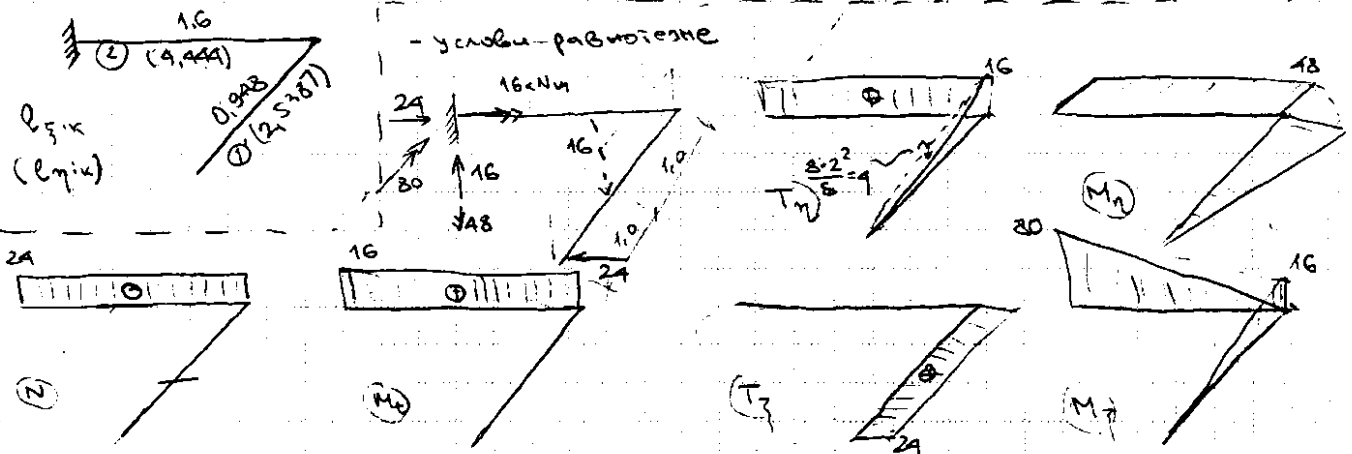 1,6
② (4,444)
0,948
① (2,5387)
lξ,iκ
(lη,iκ)
- услови-равнотезне
16кNм
24
80
16
48
16
1,0
1,0
24
16
8·2²/8=4
Tη
48
Mη
24
N
16
Mt
24
Tξ
80
16